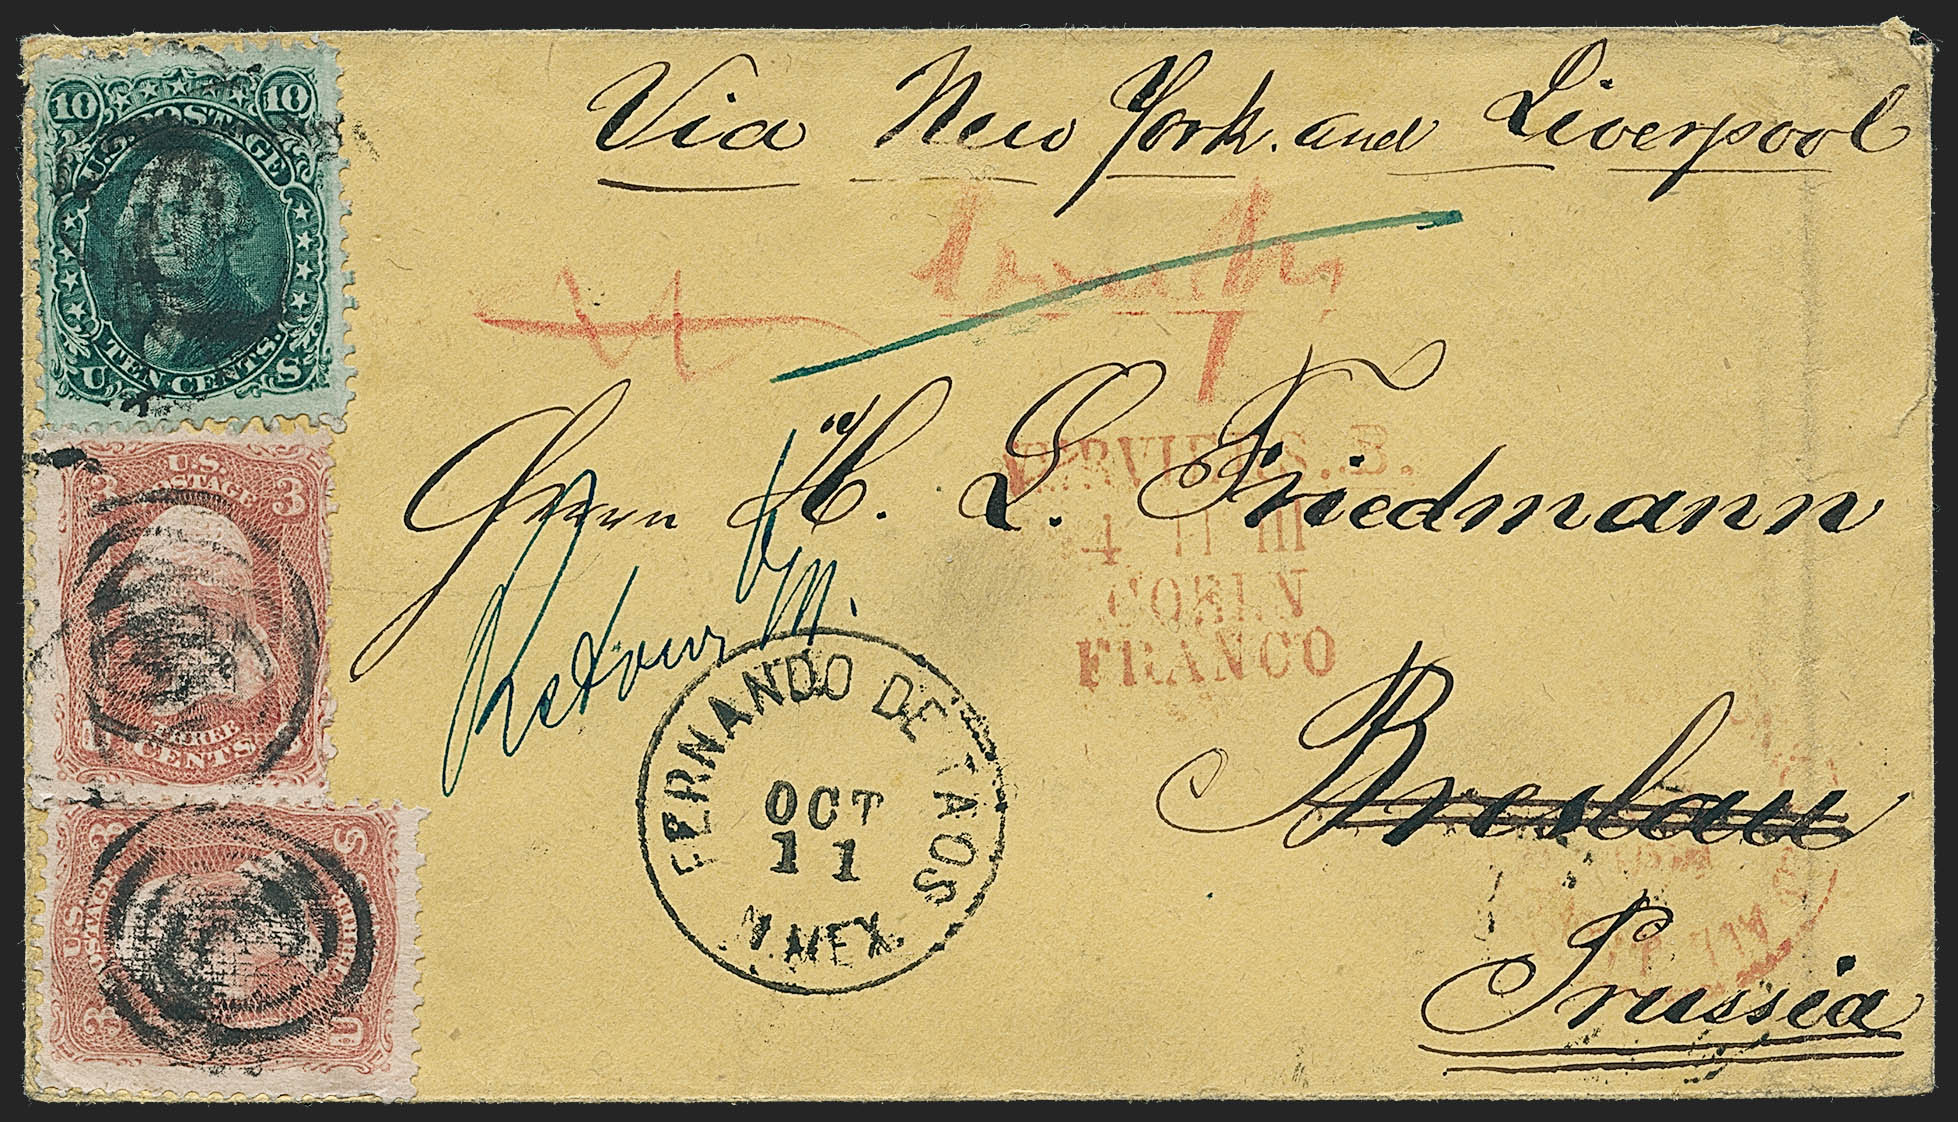 Via New York. and Liverpool
10 10
U.S. POSTAGE
TEN CENTS.
U S
Herrn H. L. Friedmann
VERVIERS. B.
4 11 III
COELN
FRANCO
3 3
U.S.
POSTAGE
THREE
CENTS
Retour
FERNANDO DE TAOS
OCT
11
N. MEX.
Breslau
Prussia
3 S
U.S.
POSTAGE
THREE
3 U